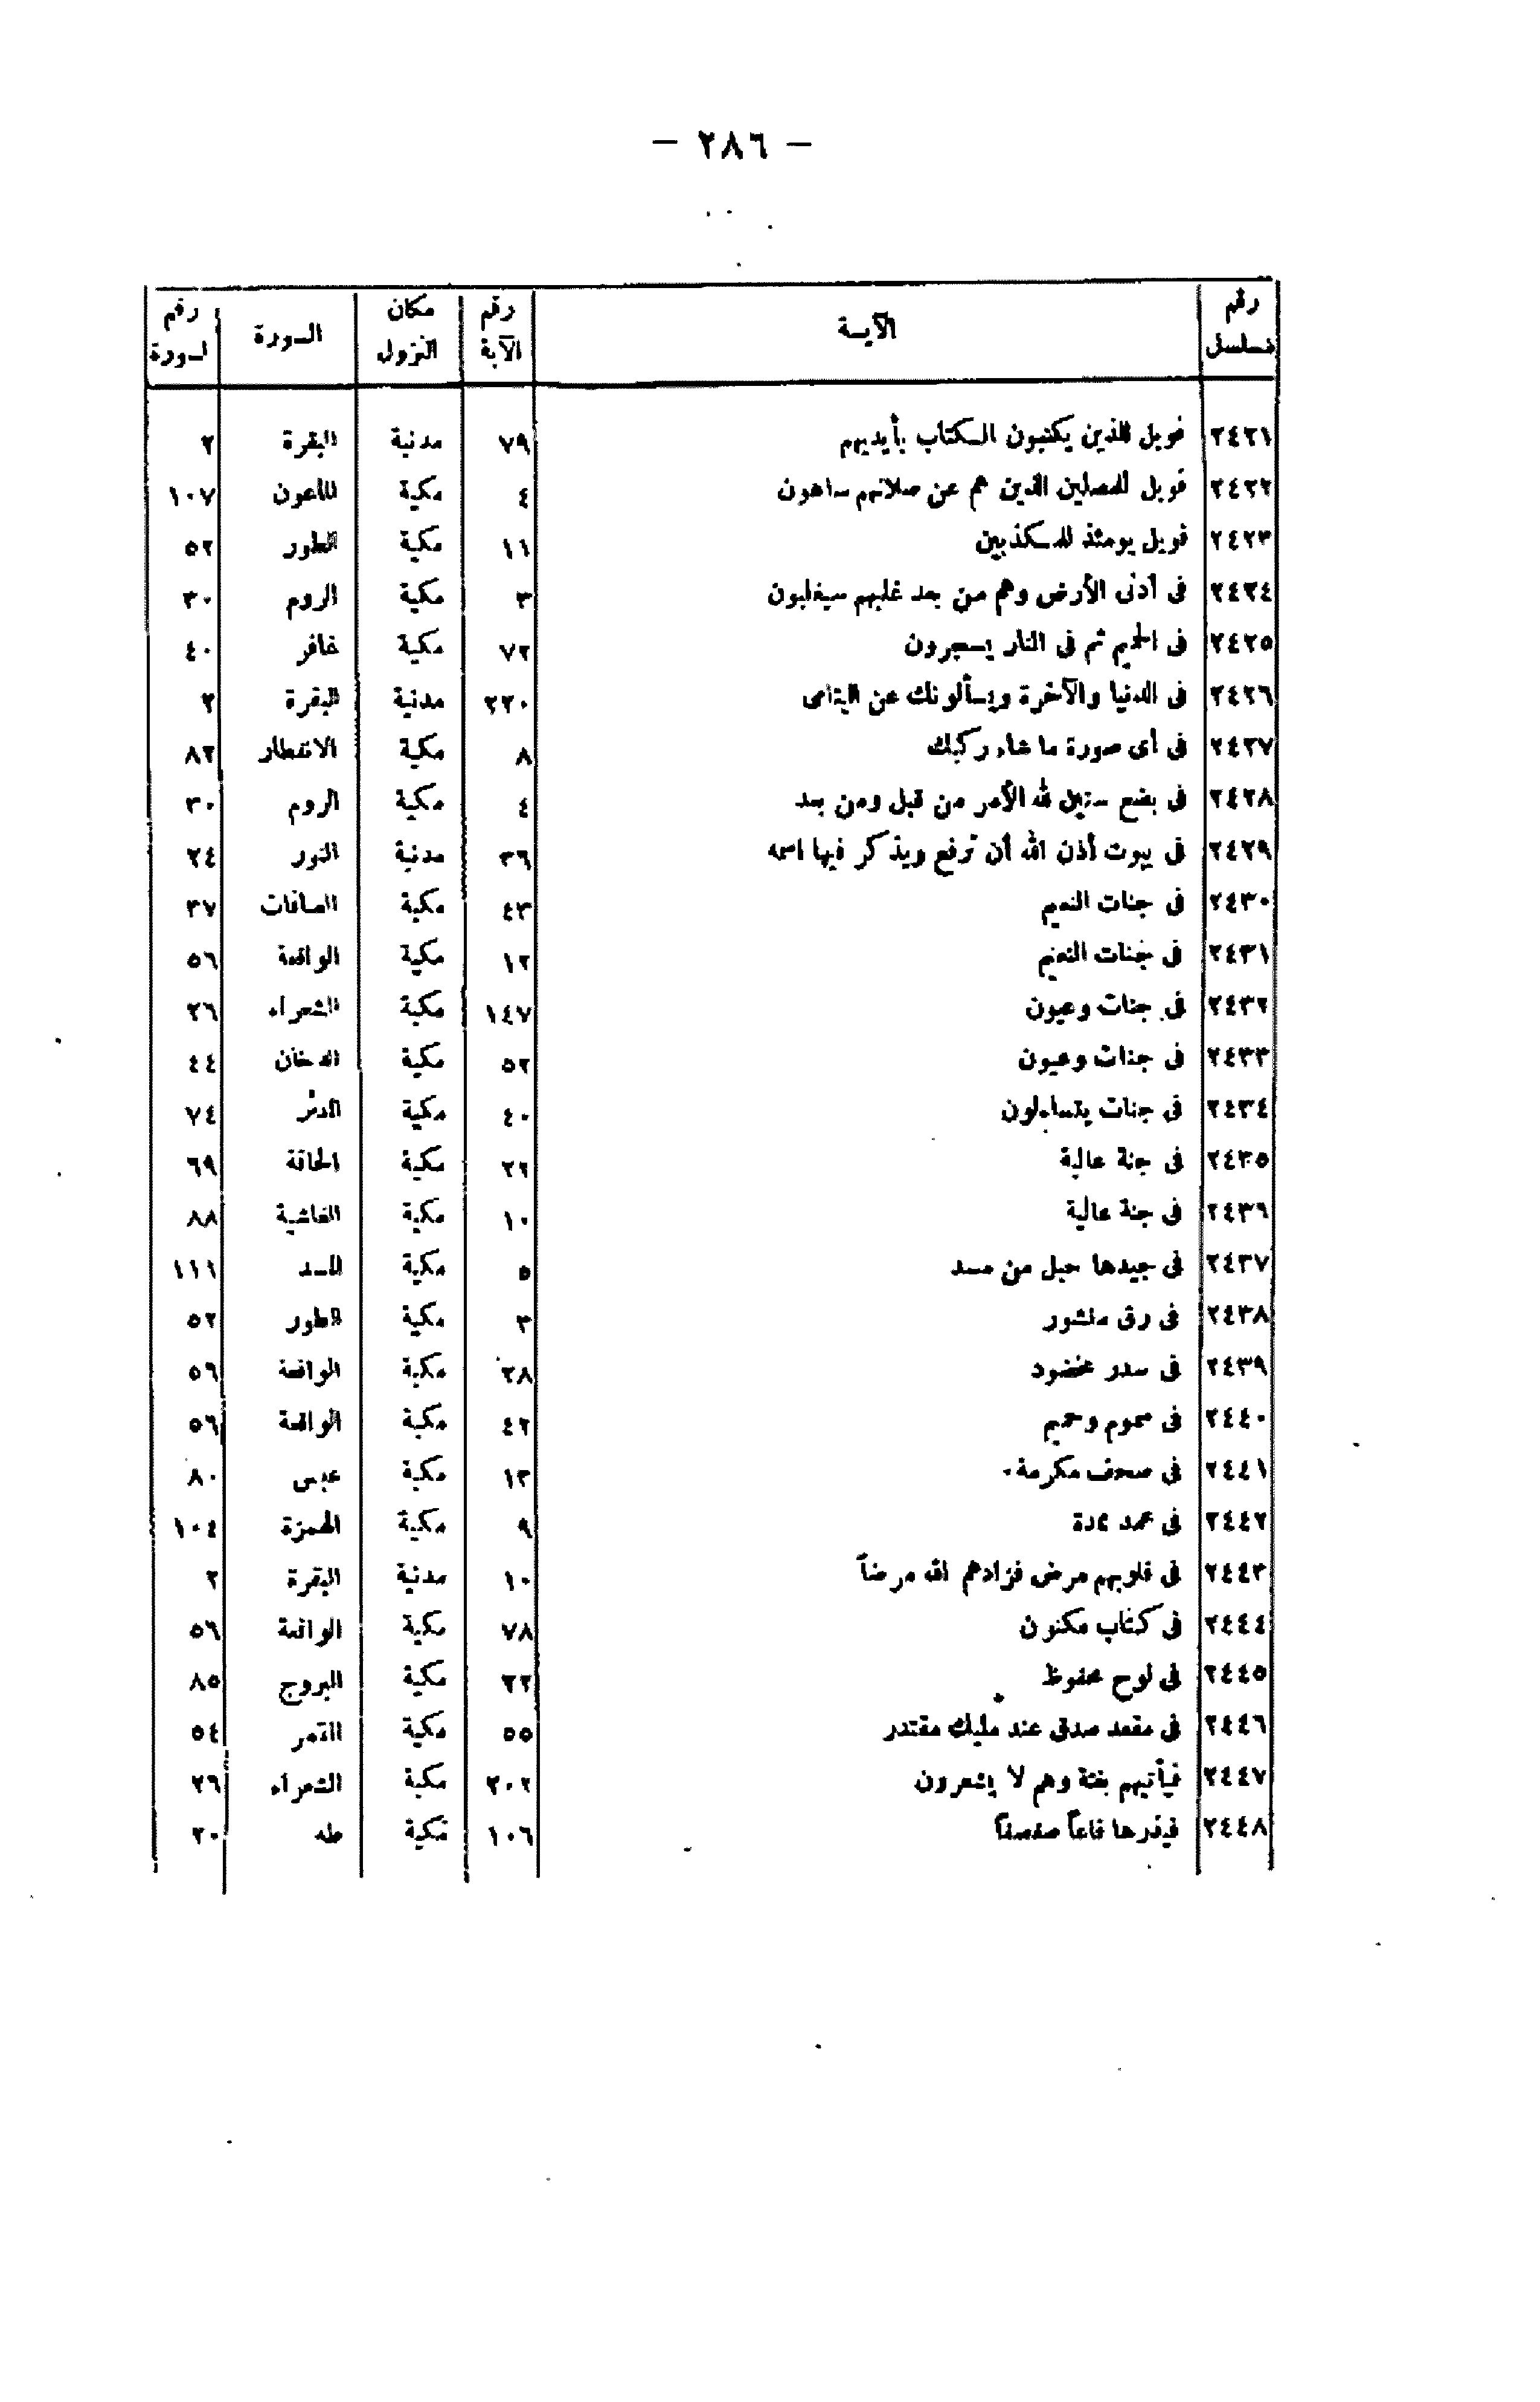 — ٢٨٦ —
رقم مسلسل | الآية | رقم الآية | مكان النزول | السورة | رقم السورة
٢٤٢١ | فويل للذين يكتبون الكتاب بأيديهم | ٧٩ | مدنية | البقرة | ٢
٢٤٢٢ | فويل للمصلين الذين هم عن صلاتهم ساهون | ٤ | مكية | الماعون | ١٠٧
٢٤٢٣ | فويل يومئذ للمكذبين | ١١ | مكية | الطور | ٥٢
٢٤٢٤ | فى أدنى الأرض وهم من بعد غلبهم سيغلبون | ٣ | مكية | الروم | ٣٠
٢٤٢٥ | فى الحميم ثم فى النار يسجرون | ٧٢ | مكية | غافر | ٤٠
٢٤٢٦ | فى الدنيا والآخرة ويسألونك عن اليتامى | ٢٢٠ | مدنية | البقرة | ٢
٢٤٢٧ | فى أى صورة ما شاء ركبك | ٨ | مكية | الانفطار | ٨٢
٢٤٢٨ | فى بضع سنين لله الأمر من قبل ومن بعد | ٤ | مكية | الروم | ٣٠
٢٤٢٩ | فى بيوت أذن الله أن ترفع ويذكر فيها اسمه | ٣٦ | مدنية | النور | ٢٤
٢٤٣٠ | فى جنات النعيم | ٤٣ | مكية | الصافات | ٣٧
٢٤٣١ | فى جنات النعيم | ١٢ | مكية | الواقعة | ٥٦
٢٤٣٢ | فى جنات وعيون | ١٤٧ | مكية | الشعراء | ٢٦
٢٤٣٣ | فى جنات وعيون | ٥٢ | مكية | الدخان | ٤٤
٢٤٣٤ | فى جنات يتساءلون | ٤٠ | مكية | المدثر | ٧٤
٢٤٣٥ | فى جنة عالية | ٢٢ | مكية | الحاقة | ٦٩
٢٤٣٦ | فى جنة عالية | ١٠ | مكية | الغاشية | ٨٨
٢٤٣٧ | فى جيدها حبل من مسد | ٥ | مكية | المسد | ١١١
٢٤٣٨ | فى رق منشور | ٣ | مكية | الطور | ٥٢
٢٤٣٩ | فى سدر مخضود | ٢٨ | مكية | الواقعة | ٥٦
٢٤٤٠ | فى سموم وحميم | ٤٢ | مكية | الواقعة | ٥٦
٢٤٤١ | فى صحف مكرمة | ١٣ | مكية | عبس | ٨٠
٢٤٤٢ | فى عمد ممدة | ٩ | مكية | الهمزة | ١٠٤
٢٤٤٣ | فى قلوبهم مرض فزادهم الله مرضاً | ١٠ | مدنية | البقرة | ٢
٢٤٤٤ | فى كتاب مكنون | ٧٨ | مكية | الواقعة | ٥٦
٢٤٤٥ | فى لوح محفوظ | ٢٢ | مكية | البروج | ٨٥
٢٤٤٦ | فى مقعد صدق عند مليك مقتدر | ٥٥ | مكية | القمر | ٥٤
٢٤٤٧ | فيأتيهم بغتة وهم لا يشعرون | ٢٠٢ | مكية | الشعراء | ٢٦
٢٤٤٨ | فيذرها قاعاً صفصفاً | ١٠٦ | مكية | طه | ٢٠